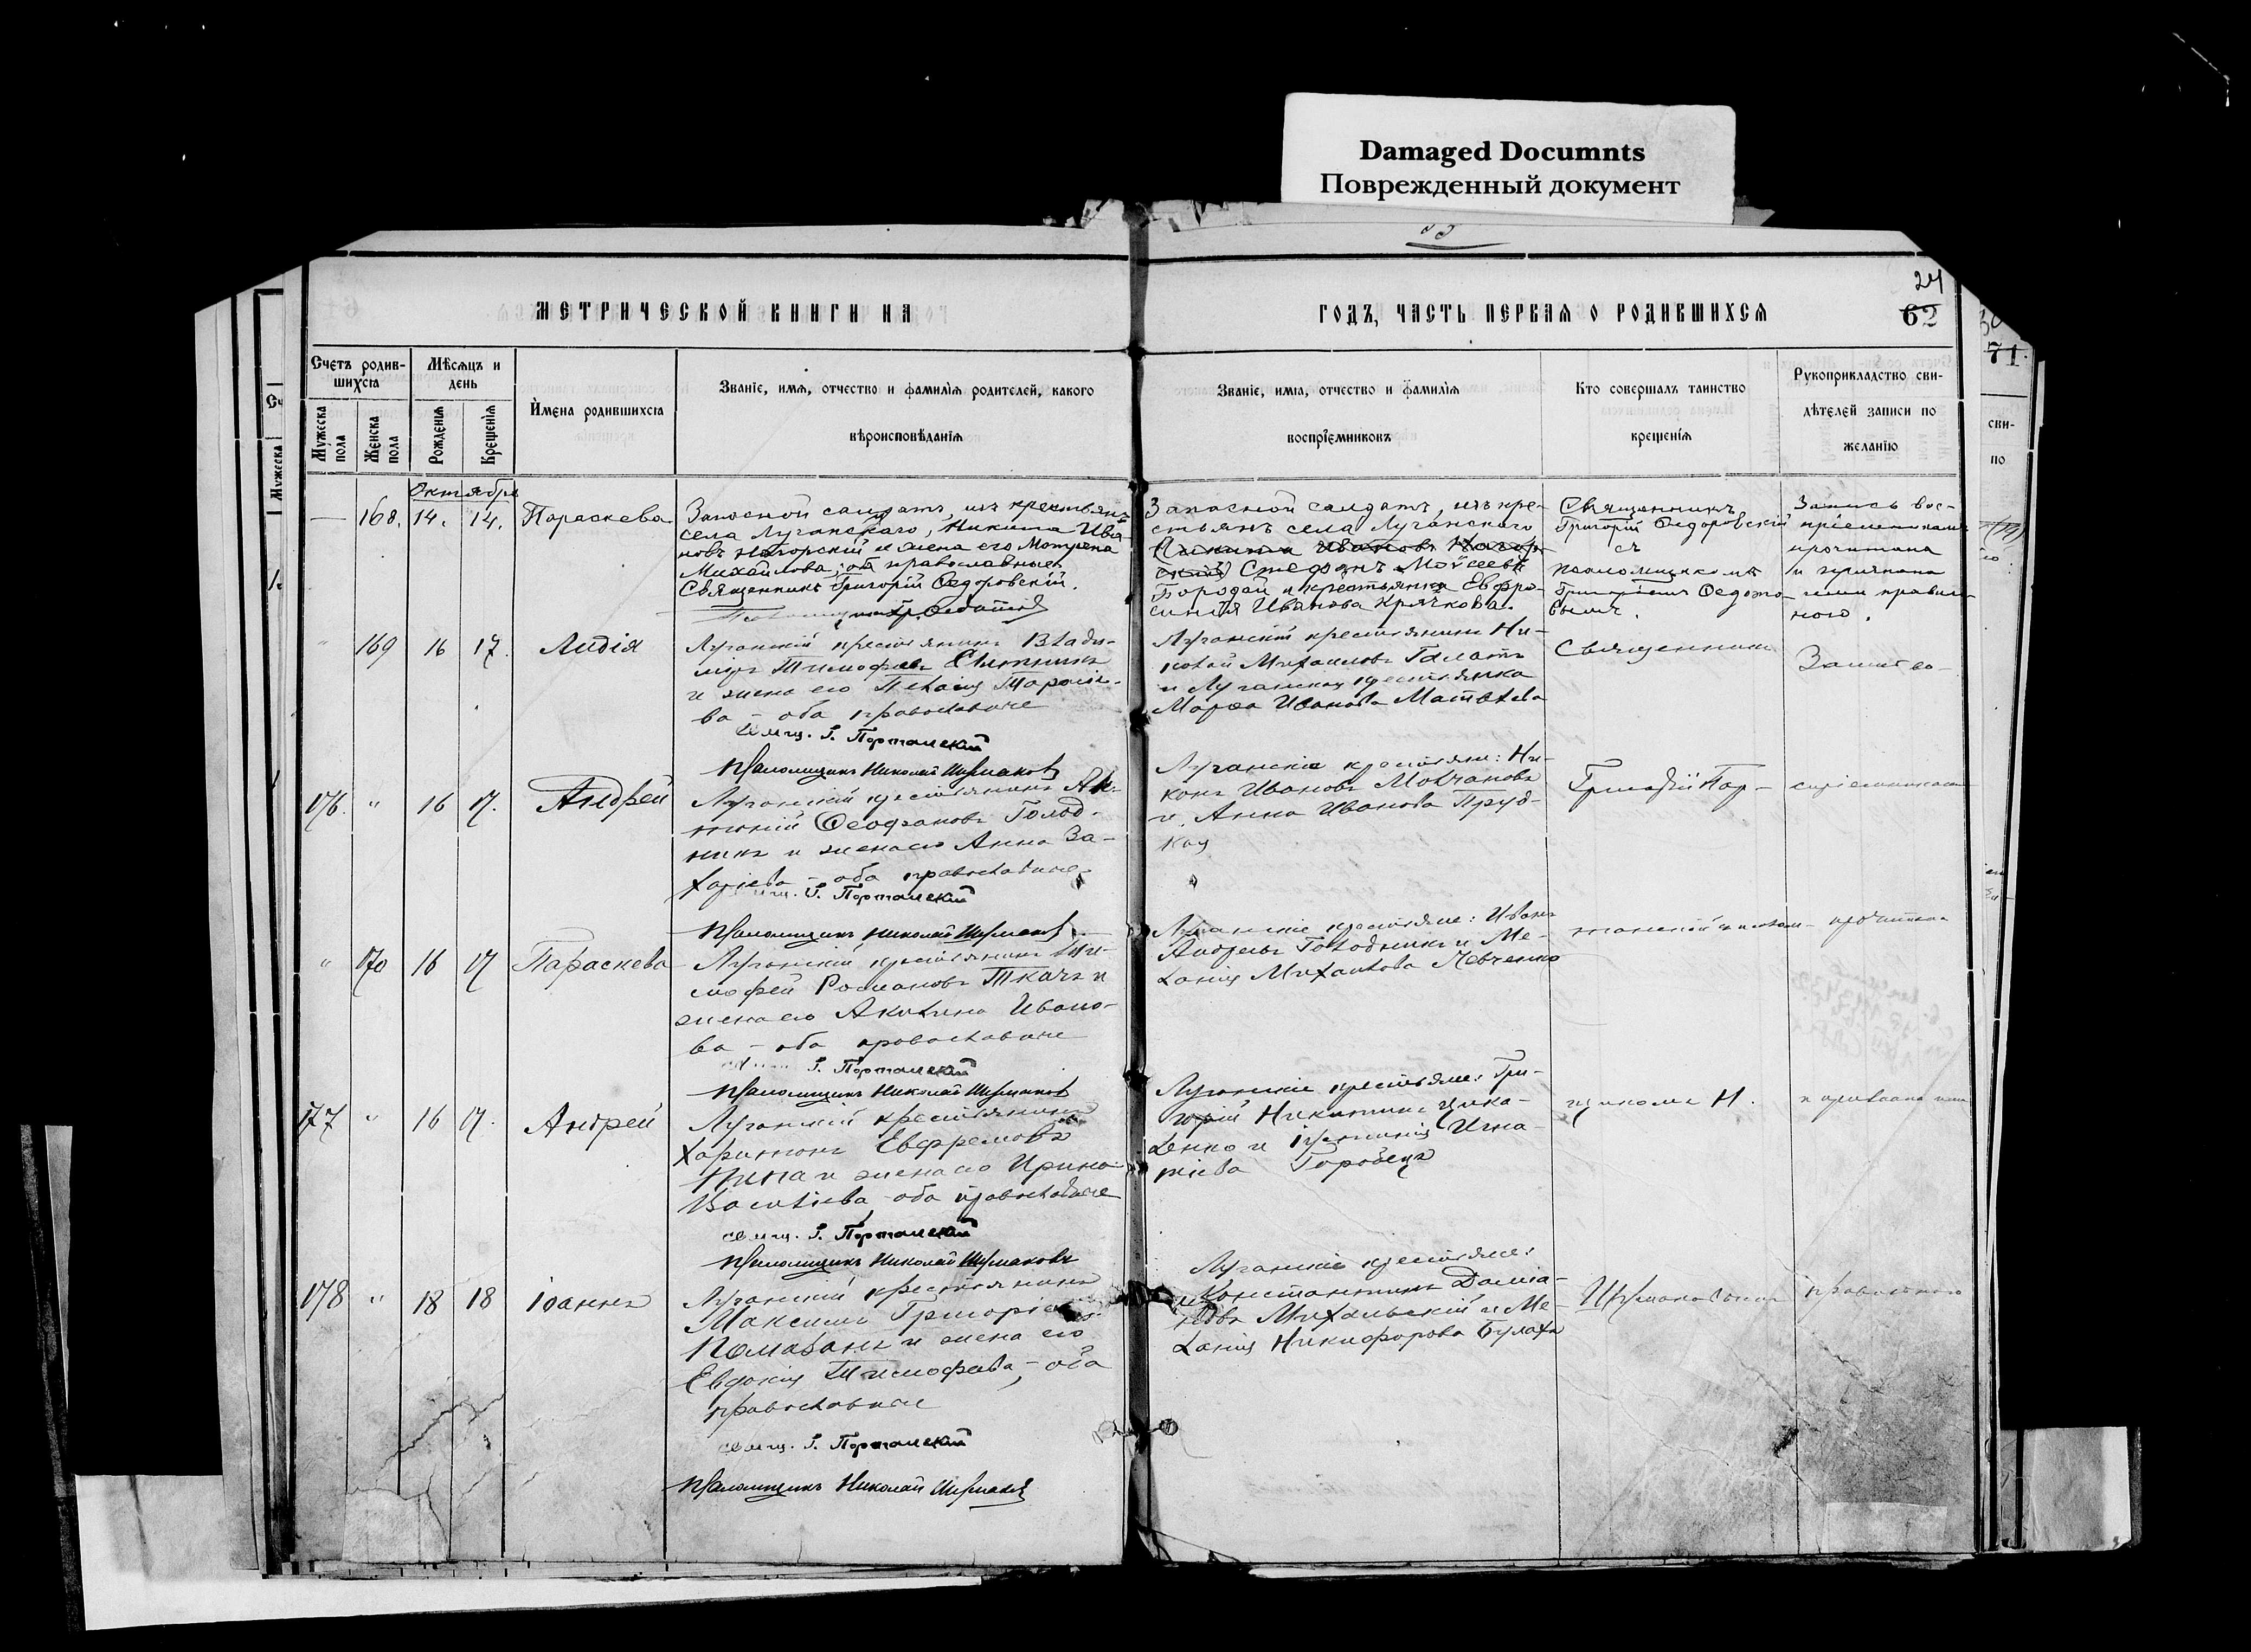 Damaged Documnts
Поврежденный документ
24
62
71.
МЕТРИЧЕСКОЙ КНИГИ НА
ГОДЪ, ЧАСТЬ ПЕРВАЯ О РОДИВШИХСЯ
Счетъ родив-
шихся
Мужеска пола
Женска пола
Мѣсяцъ и
день
Рожденія
Крещенія
Имена родившихся
Званіе, имя, отчество и фамилія родителей, какого
вѣроисповѣданія
Званіе, имя, отчество и фамилія
воспріемниковъ
Кто совершалъ таинство
крещенія
Рукоприкладство сви-
дѣтелей записи по
желанію
сви-
по
Октября
— 168. 14. 14. Параскева
Запасной салдатъ, изъ крестьянъ
села Луганскаго, Никита Ива-
новъ Нагорскій и жена его Мотрена
Михайлова, оба православные
Священникъ Григорій Ѳедоровскій.
Запасной салдатъ, изъ кре-
стьянъ села Луганскаго
Никита Ивановъ Нагор-
скій Стефанъ Мойсеевъ
Бородай и крестьянка Евфро-
синія Иванова Крячкова.
Священникъ
Григорій Ѳедоровскій
съ
псаломщикомъ
Григоріемъ Ѳедото-
вымъ.
Запись вос-
пріемниками
прочитана
и признана
ими правиль-
ною.
" 169 16 17. Лидія
Луганскій крестьянинъ Влади-
міръ Тимофеевъ
и жена его Пелагія Тарасіе-
ва – оба православные
Свящ. Г. Порталискій
Псаломщикъ Николай Шурмаковъ
Луганскій крестьянинъ Ни-
колай Михаиловъ Галатъ
и Луганская крестьянка
Марфа Иванова Матвѣева
Священникъ
176. " 16 17. Андрей
Луганскій крестьянинъ Ан-
тоній Ѳеофановъ Голод-
никъ и жена его Анна За-
харіева – оба православные
Свящ. Г. Порталискій
Псаломщикъ Николай Шурмаковъ
Луганскіе крестьяне: Ни-
конъ Ивановъ Молчановъ
и Анна Иванова Пруд-
кая
Григорій Пор-
" 170 16 17 Параскева
Луганскій крестьянинъ Ти-
мофей Романовъ Ткачъ и
жена его Акилина Ивано-
ва – оба православные
Г. Порталискій
Псаломщикъ Николай Шурмаковъ
Луганскіе крестьяне: Иванъ
Андреевъ Голодникъ и Ме-
ланія Михаилова Левченко
прочитана
177 " 16 17. Андрей
Луганскій крестьянинъ
Харитонъ Евфремовъ
и жена его Ирина
Василіева, оба православные
Свящ. Г. Порталискій
Псаломщикъ Николай Шурмаковъ
Луганскіе крестьяне: Гри-
горій Никитинъ Цика-
ленко и Іустинія Игна-
тіева Горобецъ
щикомъ Н.
178 " 18 18 Іоаннъ
Луганскій крестьянинъ
Максимъ Григоріевъ
и жена его
Евдокія Тимофеева, – оба
православные
Свящ. Г. Порталискій
Псаломщикъ Николай Шурмаковъ
Луганскіе крестьяне:
Константинъ Даміа-
новъ Михальскій и Ме-
ланія Никифорова Булаха
Шурмаковымъ
правильною